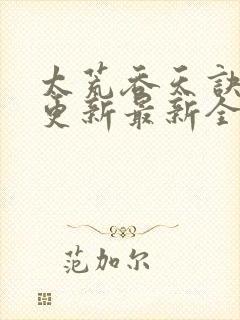 太荒吞天訣
更新最新全
范加尔